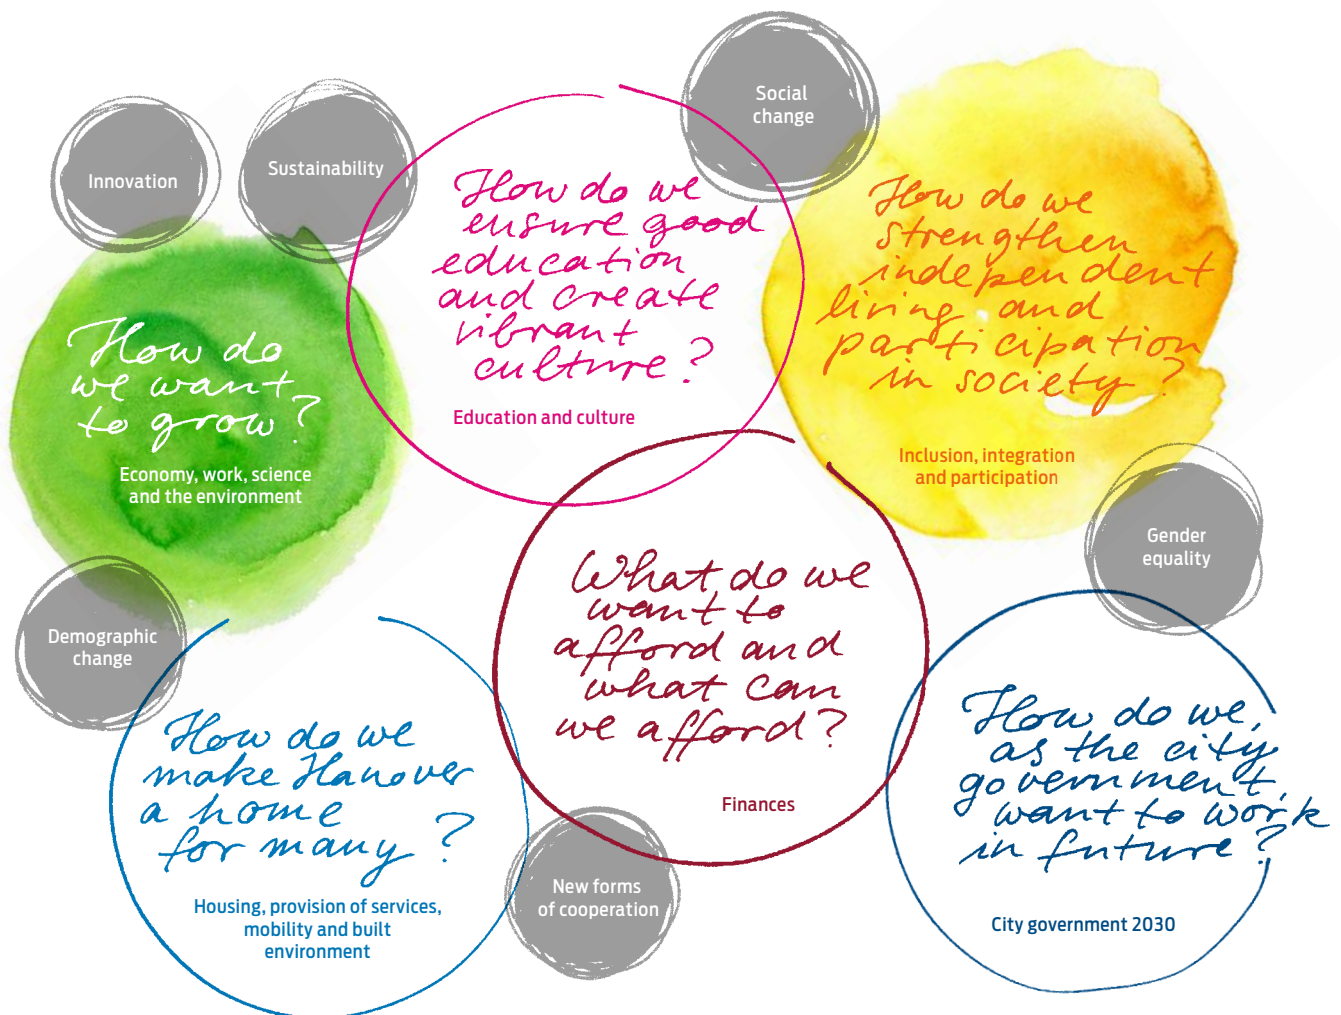 Innovation
Sustainability
Social
change
How do we
ensure good
education
and create
vibrant
culture?
Education and culture
How do we
strengthen
independent
living and
participation
in society?
Inclusion, integration
and participation
How do
we want
to grow?
Economy, work, science
and the environment
Gender
equality
What do we
want to
afford and
what can
we afford?
Finances
Demographic
change
How do we
make Hanover
a home
for many?
Housing, provision of services,
mobility and built
environment
New forms
of cooperation
How do we,
as the city
government,
want to work
in future?
City government 2030